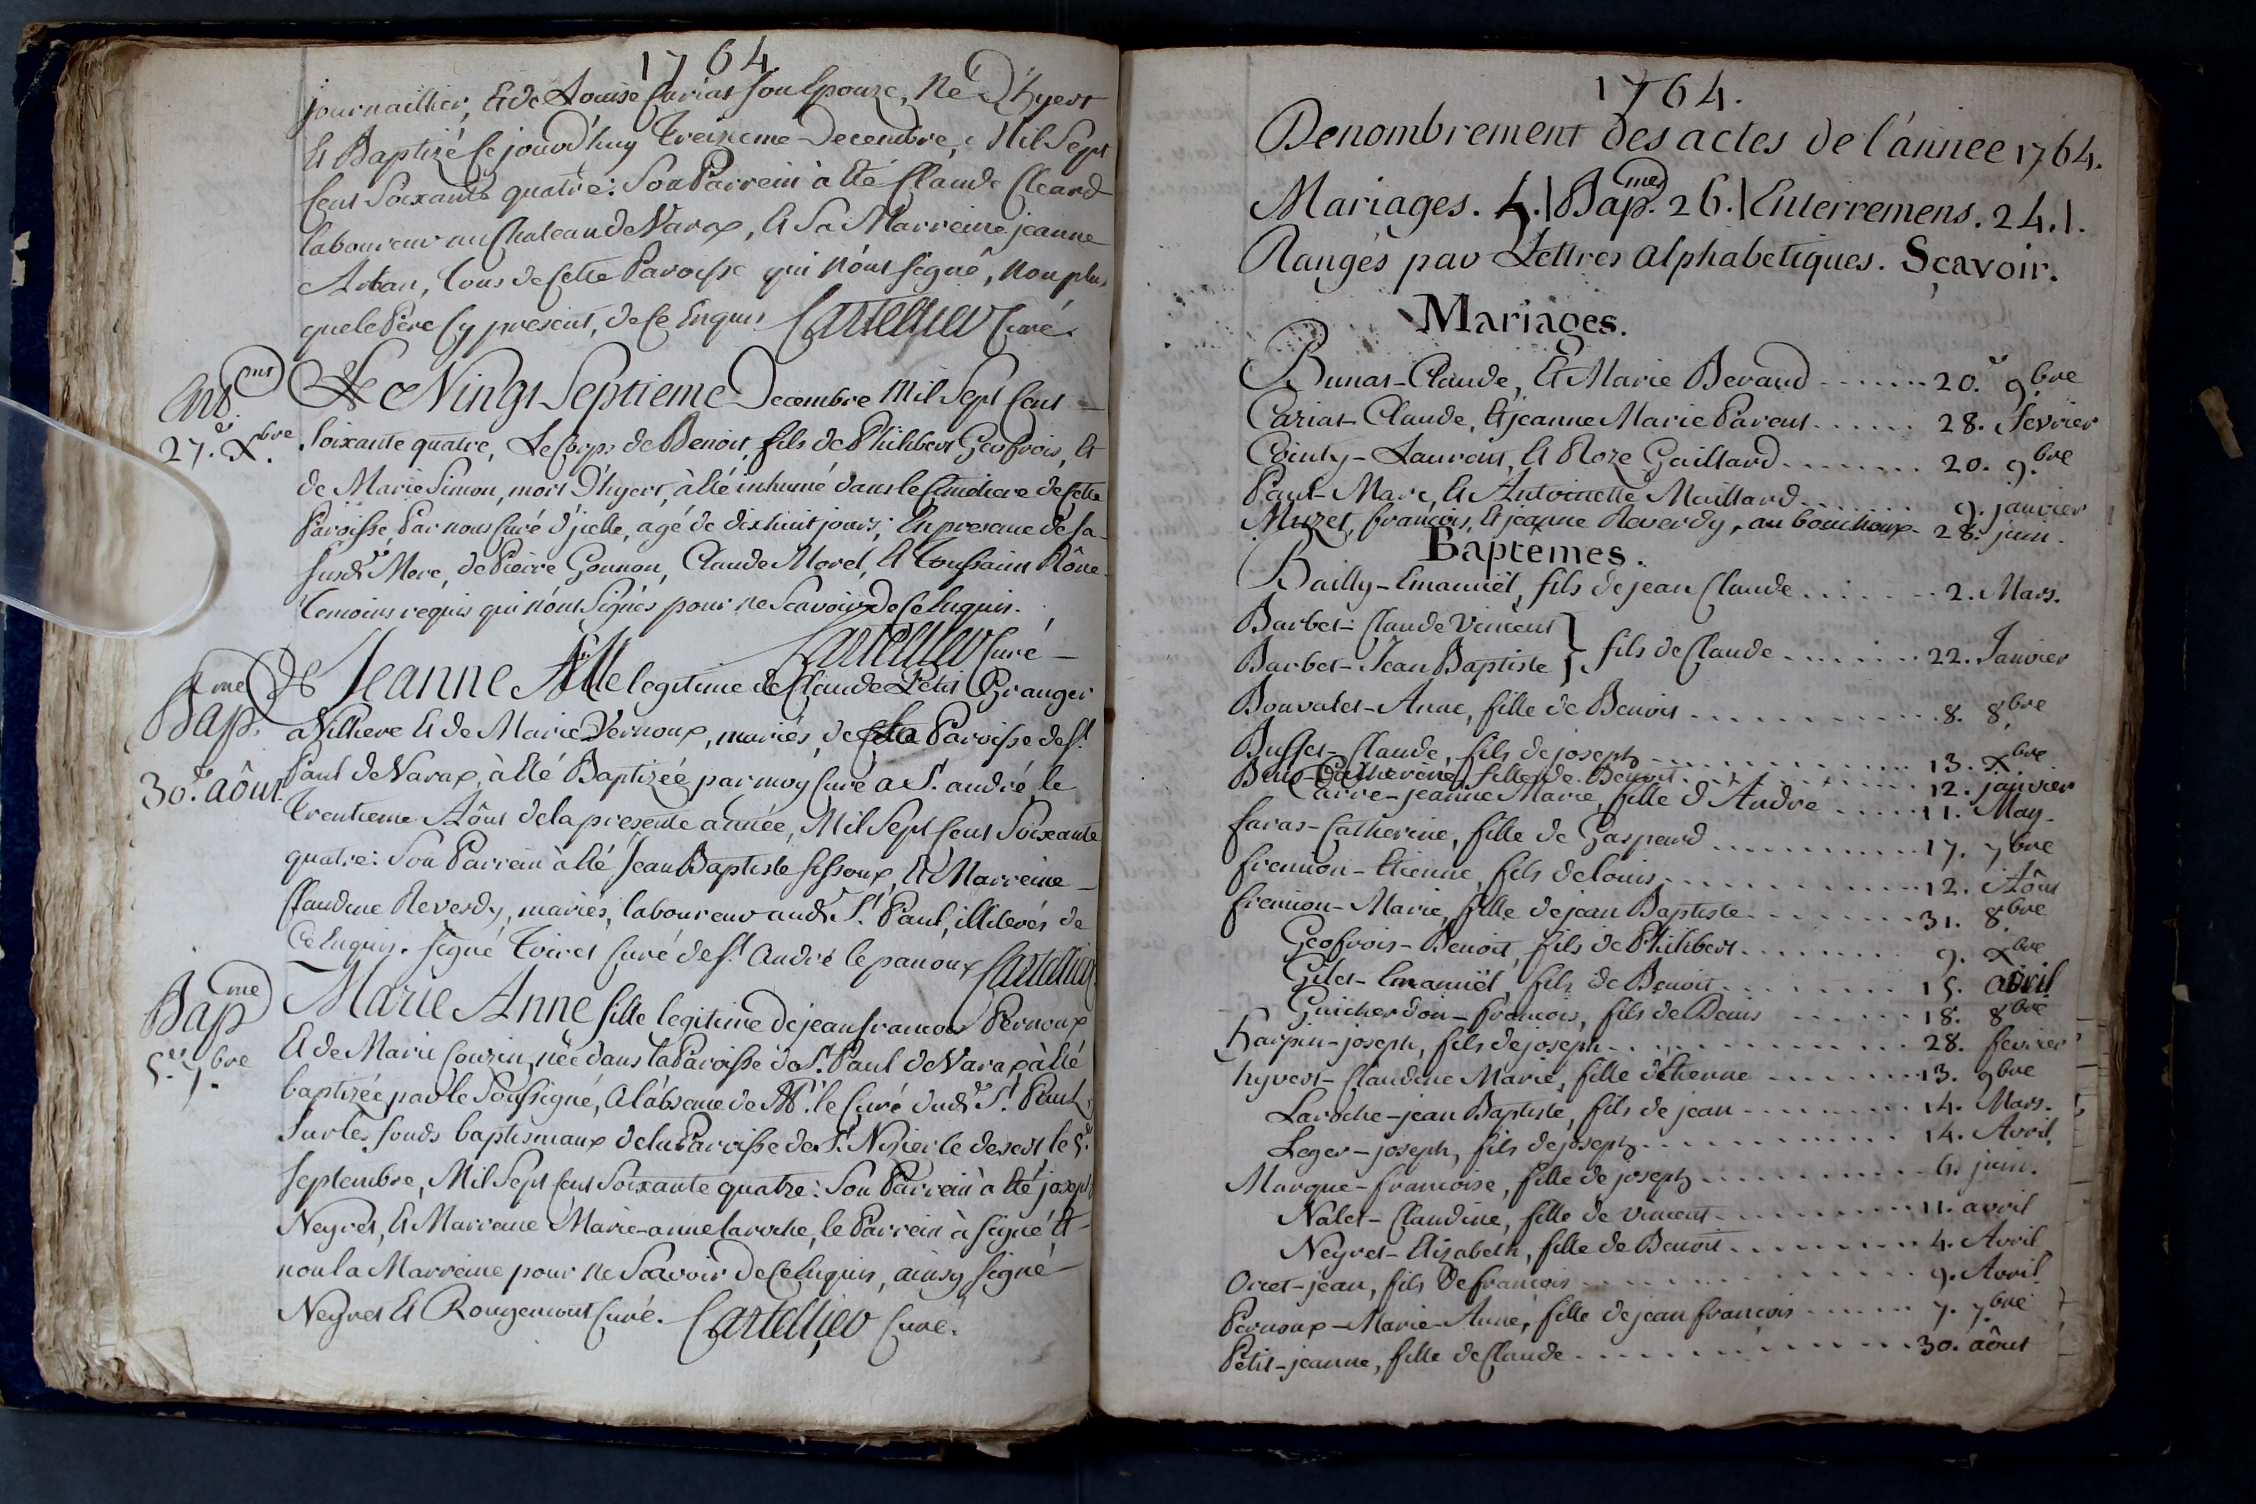 1764
journaillier, & de Louise Cariat son Epouze, Né D'hyert
& Baptizé Ce jourd'huy Treizieme Decembre, Mil Sept
Cent Soixante quatre: Son Parrein à été Claude Cleard
laboureur au Chateau de Varax, & Sa Marreine jeanne
Arban, Tous de Cette Paroisse qui n'ont signé, non plus
que le Père Cy present, de Ce Enquis. Cartellier Curé.
Ent.ent
27.e Xbre.
Le Vingt Septieme Decembre Mil Sept Cent
Soixante quatre, Le Corps de Benoit, fils de Philibert Geofrois, &
de Marie Simon, mort D'hyert, à été inhumé dans le Cimetiere de Cette
Paroisse, Par nous Curé d'jcelle, agé de dix huit jours; En presence de Sa
Susd.e Mere, de Pierre Gonnon, Claude Morel, & Toussaint Rône
Temoins requis qui n'ont Signés pour ne Scavoir De Ce Enquis.
Cartellier Curé
Bap.me
30.e aôut
De Jeanne fille legitime de Claude Petit Granger
a Villiere & de Marie Vernoux, mariés, de Cette Paroisse de St.
Paul de Varax, à été Baptizée par moy Curé a St. andré le
Trentieme Aôut de la presente année, Mil Sept Cent Soixante
quatre: Son Parrein à été Jean Baptiste Sissoux, & Marreine
Claudine Reverdy, mariés, laboureur aud.t St. Paul, illiterés de
Ce Enquis. Signé Toiret Curé de St. André le panoux Cartellier
Bap.me
5.e 7.bre
Marie Anne fille legitime de jean francois Pernoux
& de Marie Couzin, née dans la Paroisse de St. Paul de Varax à été
baptizée par le Soussigné, à l'absence de Mr. le Curé dud.t St. Paul,
Sur les fonds baptismaux de la Paroisse de St. Nizier le desert, le 5.e
Septembre, Mil Sept Cent Soixante quatre: Son Parrein à été joseph
Neyret, & Marreine Marie-anne laroche, le Parrein à signé &
non la Marreine pour ne Scavoir De Ce Enquis, ainsy signé
Neyret & Rougemont Curé. Cartellier Curé.
1764.
Denombrement des actes de l'année 1764.
Mariages. 5.| Bap.mes 26.| Enterremens. 24.|.
Rangés par Lettres alphabetiques. Sçavoir.
Mariages.
Bunat-Claude, & Marie Beraud ....... 20.e 9bre
Cariat-Claude, & jeanne Marie Parent ...... 28. Fevrier
Cointy-Laurent, & Roze Gaillard ........ 20. 9.bre
Paul-Marc, & Antoinette Maillard ...... 9. janvier
Muzet, françois, & jeanne Reverdy, au bouchoux 28. juin.
Baptêmes.
Bailly-Emanuël, fils de jean Claude ....... 2. Mars.
Barbet-Claude Vincent
Barbet-Jean Baptiste } fils de Claude ....... 22. Janvier
Bouvatet-Anne, fille de Benoit ............. 8. 8.bre
Buffet-Claude, fils de joseph .............. 13. Xbre
Buis-Catherine, fille de Benoit ............ 12. janvier
Carre-jeanne Marie, fille d'André ..... 11. May.
faras-Catherine, fille de Gaspard ............ 17. 7bre
fremion-Etienne, fils de louis ............. 12. Aôut
fremion-Marie, fille de jean Baptiste ......... 31. 8.bre
Geofrois-Benoit, fils de Philibert ......... 9. Xbre
Gilet-Emanuël, fils de Benoit ......... 15. avril
Guicherdon-francois, fils de Denis ...... 18. 8bre
harpin-joseph, fils de joseph .............. 28. fevrier
hyvert-Claudine Marie, fille d'Etienne ....... 13. 9bre
Laroche-jean Baptiste, fils de jean ......... 14. Mars.
Leger-joseph, fils de joseph ............. 14. Avril.
Marque-francoise, fille de joseph .......... 6. juin.
Nalet-Claudine, fille de Vincent ......... 11. avril
Neyret-Elizabeth, fille de Benoit ......... 4. Avril
Orcet-jean, fils de francois ............... 9. Avril
Pernoux-Marie-Anne, fille de jean francois ....... 7. 7bre
Petit-jeanne, fille de Claude ............... 30. aôut